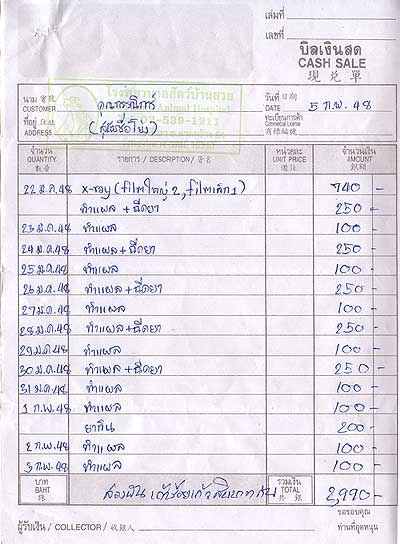 เล่มที่
เลขที่
บิลเงินสด
CASH SALE
現兌單
โรงพยาบาลสัตว์บ้านสวย
Animal Hospital
02-539-1211
นาม 寶號
CUSTOMER
วันที่ 日期
DATE 5 ก.พ. 48
ที่อยู่ 住址
ADDRESS
ทะเบียนการค้า
Commercial License
商標編號
จำนวน
QUANTITY
數量
รายการ / DESCRPTION / 貨名
หน่วยละ
UNIT PRICE
備註
จำนวนเงิน
AMOUNT
銀額
22 ม.ค. 48 x-ray (filmใหญ่ 2, filmเล็ก 1) 740 -
ทำแผล + ฉีดยา 250 -
23 ม.ค. 48 ทำแผล 100 -
24 ม.ค. 48 ทำแผล + ฉีดยา 250 -
25 ม.ค. 48 ทำแผล 100 -
26 ม.ค. 48 ทำแผล + ฉีดยา 250 -
27 ม.ค. 48 ทำแผล 100 -
28 ม.ค. 48 ทำแผล + ฉีดยา 250 -
29 ม.ค. 48 ทำแผล 100 -
30 ม.ค. 48 ทำแผล + ฉีดยา 250 -
31 ม.ค. 48 ทำแผล 100 -
1 ก.พ. 48 ทำแผล 100 -
ยากิน 200 -
2 ก.พ. 48 ทำแผล 100 -
3 ก.พ. 48 ทำแผล 100 -
บาท
BAHT
銖
สองพันเก้าร้อยเก้าสิบบาทถ้วน
รวมเงิน
TOTAL
共銀
2,990 -
ผู้รับเงิน / COLLECTOR / 收銀人
ขอขอบคุณ
ท่านที่อุดหนุน